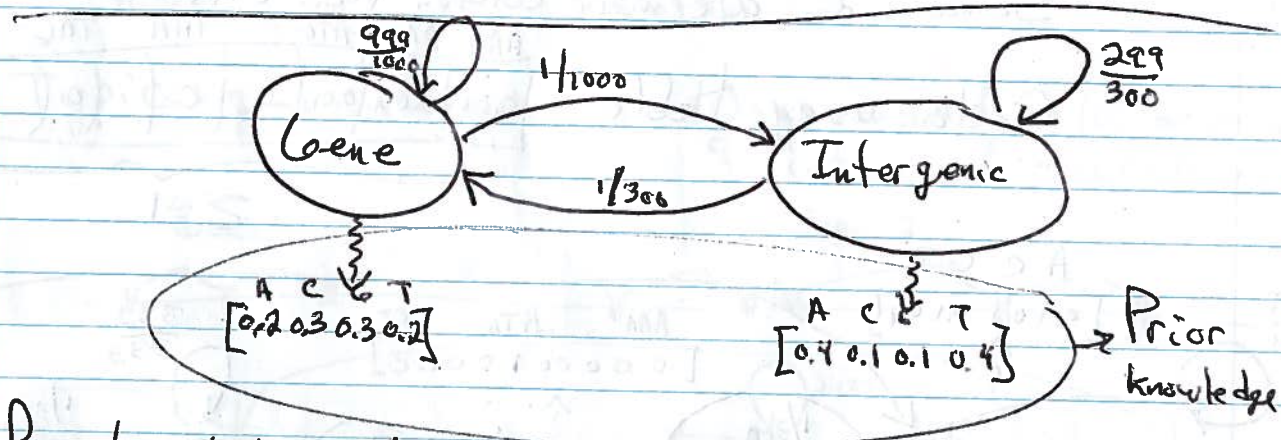 999
1000
1/1000
299
300
Gene
Intergenic
1/300
A C G T
[0.2 0.3 0.3 0.2]
A C G T
[0.4 0.1 0.1 0.4]
Prior
knowledge